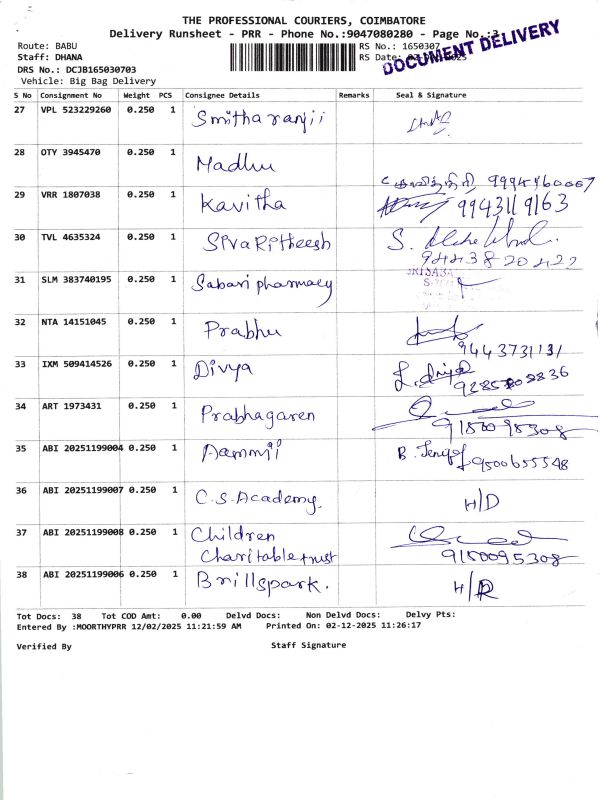 THE PROFESSIONAL COURIERS, COIMBATORE
Delivery Runsheet - PRR - Phone No.:9047080280 - Page No.:3
DOCUMENT DELIVERY
Route: BABU RS No.: 1650307
Staff: DHANA RS Date:
DRS No.: DCJB165030703
Vehicle: Big Bag Delivery
S No Consignment No Weight PCS Consignee Details Remarks Seal & Signature
27 VPL 523229260 0.250 1 Smitha ranjii
28 OTY 3945470 0.250 1 Madhu
29 VRR 1807038 0.250 1 Kavitha 9943119163
30 TVL 4635324 0.250 1 Siva Ritheesh S.
31 SLM 383740195 0.250 1 Sabari pharmacy
32 NTA 14151045 0.250 1 Prabhu
9443731131
33 IXM 509414526 0.250 1 Divya
34 ART 1973431 0.250 1 Prabhagaren
9150095308
35 ABI 20251199004 0.250 1 Aammii B. 9500655548
36 ABI 20251199007 0.250 1 C.S. Academy. H/D
37 ABI 20251199008 0.250 1 Children
Charitable trust 9150095308
38 ABI 20251199006 0.250 1 Brillspark. H/
Tot Docs: 38 Tot COD Amt: 0.00 Delvd Docs: Non Delvd Docs: Delvy Pts:
Entered By :MOORTHYPRR 12/02/2025 11:21:59 AM Printed On: 02-12-2025 11:26:17
Verified By Staff Signature